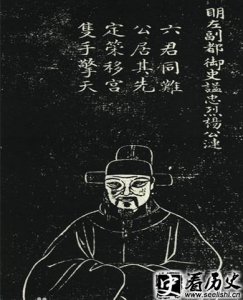 明左副都御史諡忠烈楊公漣
六君同難
公居其先
定策移宮
隻手擎天
看历史
www.seelishi.cn